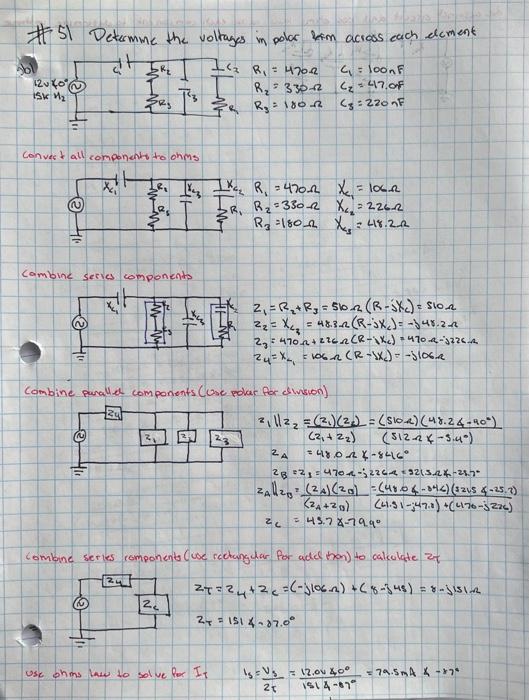 #51 Determine the voltages in polar form across each element
C1 R2 C2 R1 = 470Ω C1 = 100nF
12V∠0° R2 = 330Ω C2 = 47.0F
15K Hz R3 C3 R1 R3 = 180Ω C3 = 220nF
Convert all components to ohms
XC1 R2 XC3 XC2 R1 = 470Ω XC1 = 106Ω
R3 R1 R2 = 330Ω XC2 = 226Ω
R3 = 180Ω XC3 = 48.2Ω
Combine series components
XC1 R2 XC3 Z1 = R2 + R3 = 510Ω (R-jXC) = 510Ω
Z2 = XC3 = 48.3Ω (R-jXC) = -j48.2Ω
R3 R1 Z3 = 470Ω + 226Ω (R-jXC) = 470Ω-j226Ω
Z4 = XC1 = 106Ω (R-jXC) = -j106Ω
Combine parallel components (use polar for division)
Z4 Z1||Z2 = (Z1)(Z2) = (510Ω)(48.2∠-90°)
Z1 Z2 Z3 (Z1 + Z2) (512Ω∠-5.4°)
ZA = 48.0Ω∠-84.6°
ZB = Z3 = 470Ω-j226Ω = 521.5Ω∠-25.7°
ZA||ZB = (ZA)(ZB) = (48.0∠-84.6)(521.5∠-25.7)
(ZA + ZB) (4.51-j47.8) + (470-j226)
ZC = 45.7∠-79.9°
Combine series components (use rectangular for addition) to calculate ZT
Z4 ZT = Z4 + ZC = (-j106Ω) + (8-j45) = 8-j151Ω
ZC ZT = 151∠-87.0°
Use ohms law to solve for IT IS = VS = 12.0V∠0° = 79.5mA ∠-87°
ZT 151∠-87°